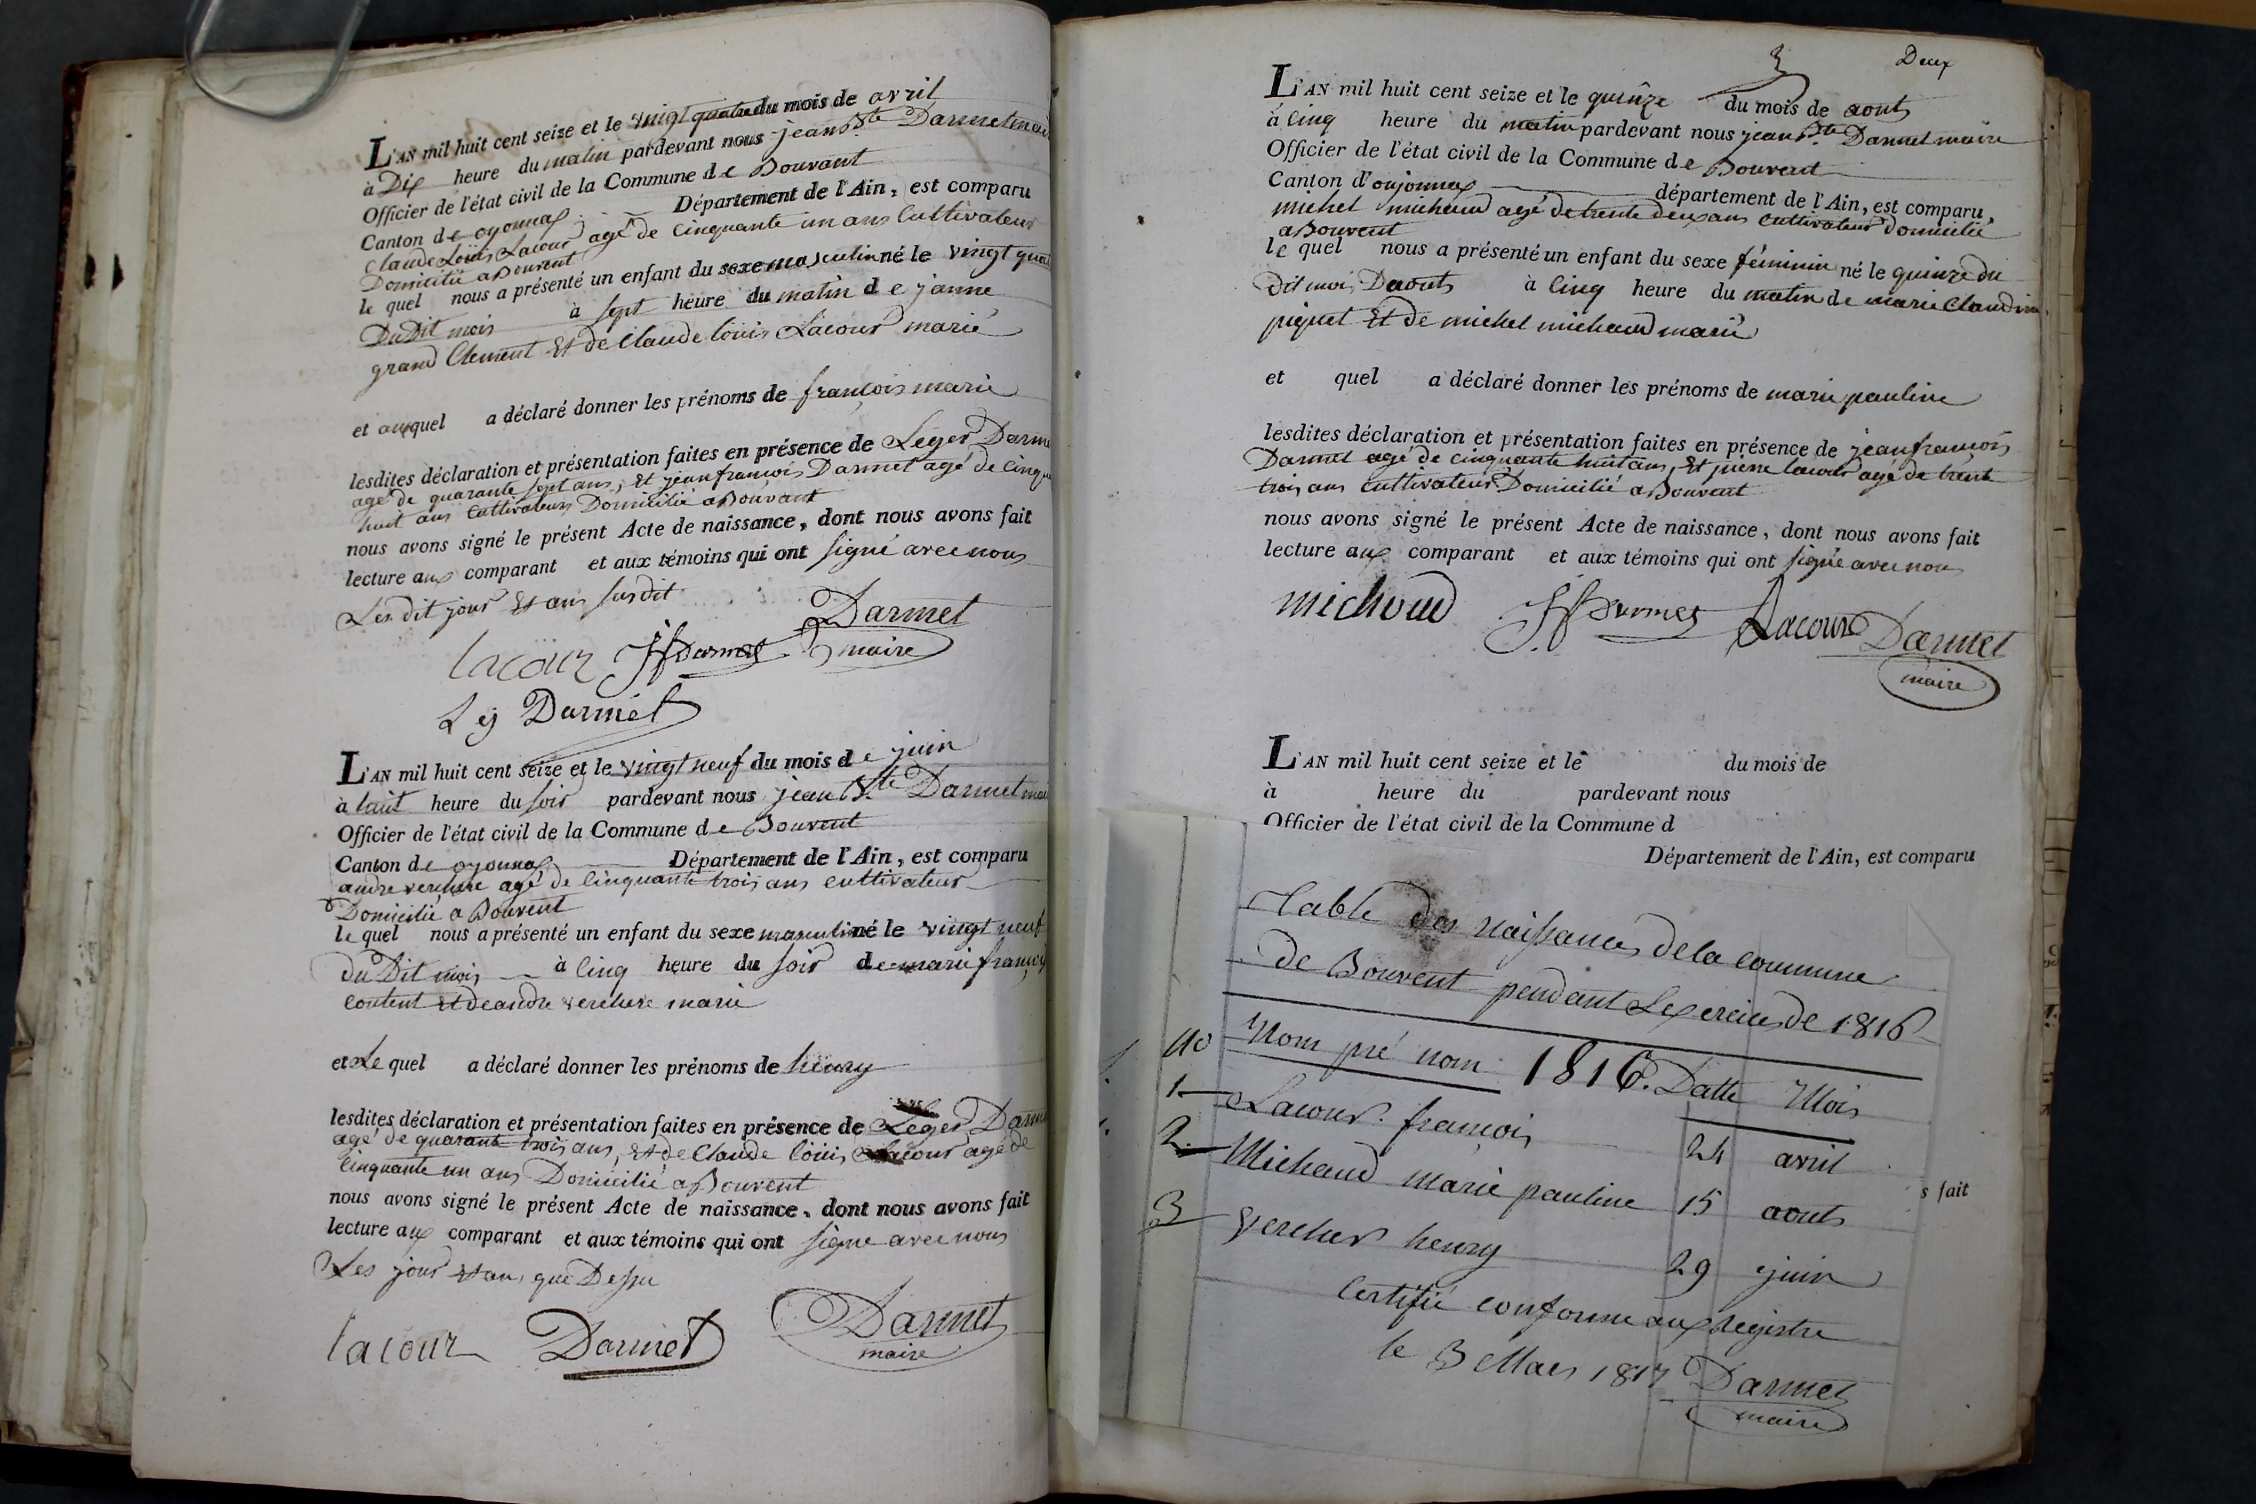 L'AN mil huit cent seize et le vingt quatre du mois de avril
à Dix heure du matin pardevant nous jean Bte Darmet mai
Officier de l'état civil de la Commune de Bouvant
Canton de oyonnax Département de l'Ain, est comparu
Claude Louis Lacour agé de cinquante un ans Cultivateur
Domicilié a Bouvent
le quel nous a présenté un enfant du sexe masculin né le vingt quat
Du Dit mois à sept heure du matin de janne
grand Clement Et de Claude louis Lacour marié
et auxquel a déclaré donner les prénoms de françois marie
lesdites déclaration et présentation faites en présence de Léger Darme
agé de quarante sept ans, Et jean francois Darmet agé de cinqu
huit ans Cultivateurs Domicilié a Bouvant
nous avons signé le présent Acte de naissance, dont nous avons fait
lecture aux comparant et aux témoins qui ont signé avec nous
Les dit jour Et an susdit
Darmet
lacour JfDarmet maire
Lg Darmet
L'AN mil huit cent seize et le vingt neuf du mois de juin
à huit heure du soir pardevant nous jean Bte Darmet mai
Officier de l'état civil de la Commune de Bouvent
Canton de oyonnax Département de l'Ain, est comparu
andre verchere agé de cinquante trois ans cultivateur
Domicilié a Bouvent
le quel nous a présenté un enfant du sexe masculin né le vingt neuf
du Dit mois à cinq heure du soir de marie françoi
content Et de andre verchere marié
et Le quel a déclaré donner les prénoms de henry
lesdites déclaration et présentation faites en présence de Léger Darme
agé de quarante trois ans, Et de Claude louis Lacour agé de
cinquante un ans Domicilié a Bouvent
nous avons signé le présent Acte de naissance, dont nous avons fait
lecture aux comparant et aux témoins qui ont signe avec nous
Les jour Et an que Dessu
lacour Darmet Darmet
maire
3 Deux
L'AN mil huit cent seize et le quinze du mois de aout
à cinq heure du matin pardevant nous jean Bte Darmet maire
Officier de l'état civil de la Commune de Bouvent
Canton d'oujonnax département de l'Ain, est comparu,
michel michaud agé de trente deux ans cultivateur domicilié
a Bouvent
le quel nous a présenté un enfant du sexe féminin né le quinze du
dit mois Daout à cinq heure du matin de marie Claudin
piquet Et de michel michaud marié
et quel a déclaré donner les prénoms de marie pauline
lesdites déclaration et présentation faites en présence de jean francois
Darmet agé de cinquante huit ans, Et pierre lacour agé de trente
trois ans cultivateurs Domicilié a Bouvent
nous avons signé le présent Acte de naissance, dont nous avons fait
lecture aux comparant et aux témoins qui ont signé avec nous
michoud JfDarmet Lacour Darmet
maire
L'AN mil huit cent seize et le du mois de
à heure du pardevant nous
Officier de l'état civil de la Commune d
Département de l'Ain, est comparu
Table des naissances de la commune
de Bouvent pendant Lexercice de 1816
No Nom pré nom 1816. Datte Mois
1 Lacour. francois 24 avril
2. Michaud marie pauline 15 aout
3 vercher henry 29 juin
s fait
Certifié conforme aux registre
le 3 Mars 1817 Darmet
maire